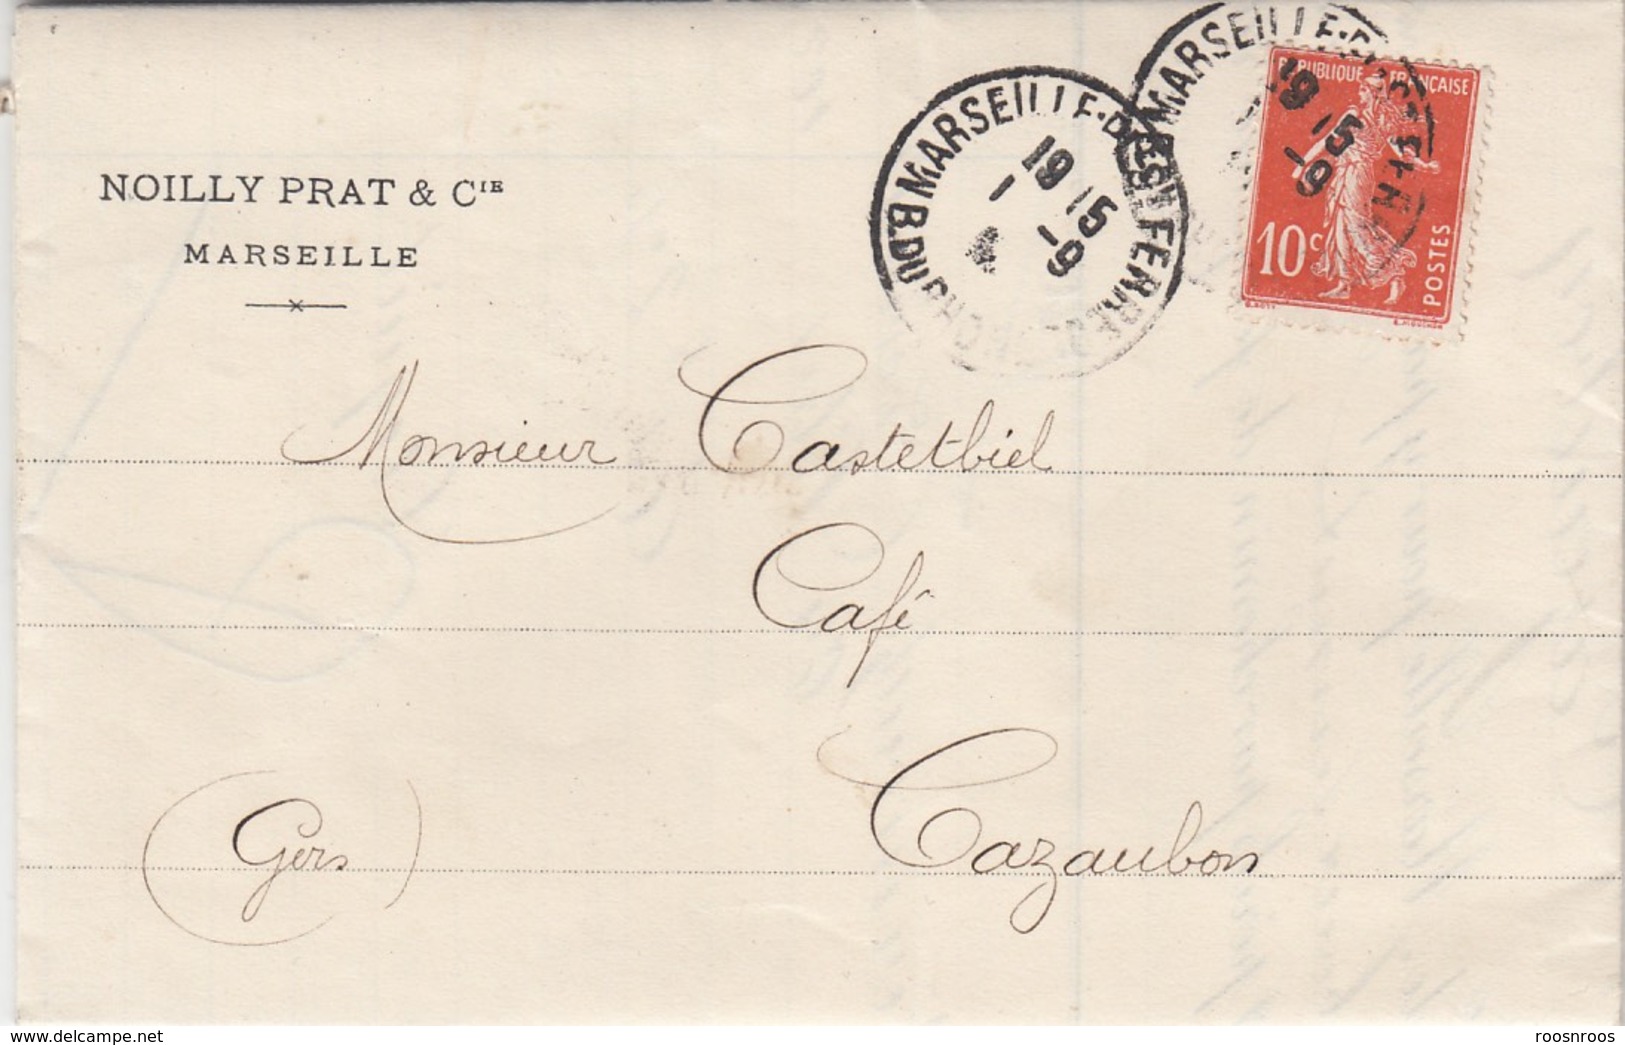 NOILLY PRAT & CIE
MARSEILLE
MARSEILLE
B. DU RHONE
19 15
1 -9
MARSEILLE
19 15
-9
RÉPUBLIQUE FRANÇAISE
10c
POSTES
Monsieur Castetbiel
Café
Cazaubon
(Gers)
www.delcampe.net
roosnroos